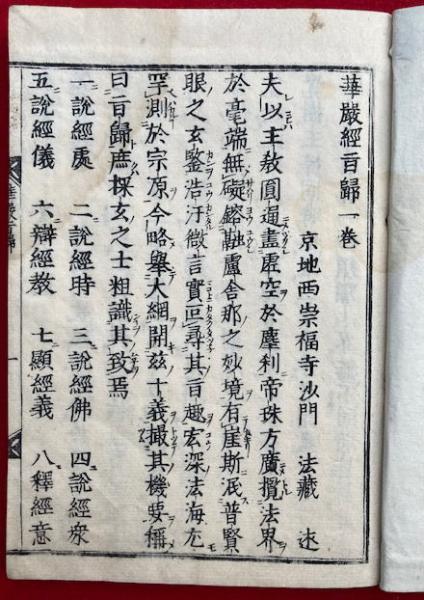 華嚴經旨歸一卷
京地西崇福寺沙門 法藏 述
夫以主教圓通盡虛空於塵刹帝珠方廣攬法界
於毫端無礙鎔融盧舍那之妙境有崖斯泯普賢
眼之玄鑒浩汗微言實叵尋其旨趣宏深法海尤
罕測於宗原今略舉大綱開茲十義撮其機要稱
曰旨歸庶探玄之士粗識其致焉
一說經處 二說經時 三說經佛 四說經衆
五說經儀 六辯經教 七顯經義 八釋經意
華嚴旨歸
一